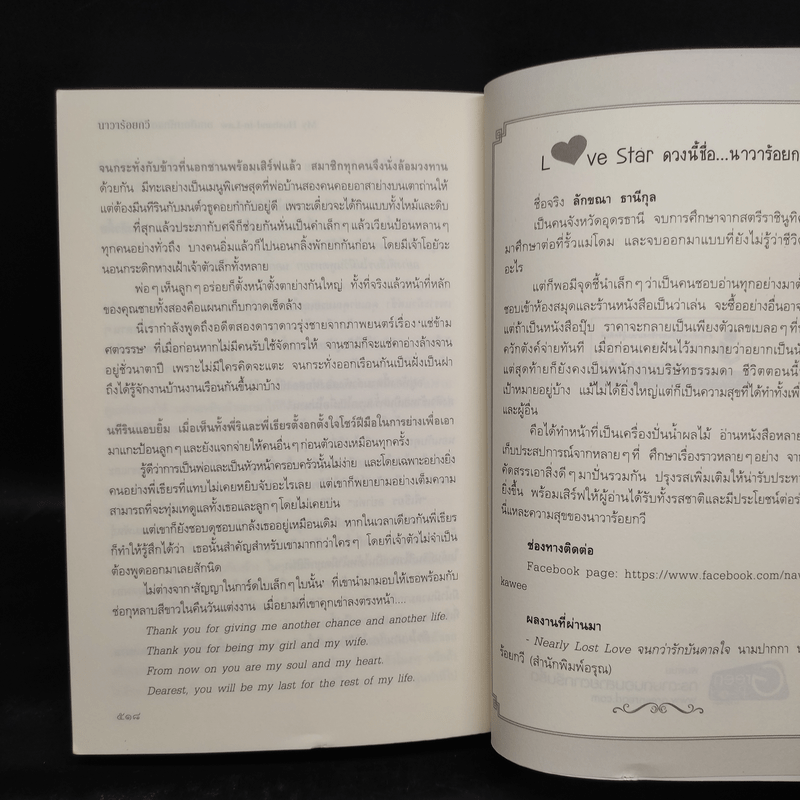 นาวาร้อยกวี
จนกระทั่งกับข้าวที่นอกชานพร้อมเสิร์ฟแล้ว สมาชิกทุกคนจึงนั่งล้อมวงทาน
ด้วยกัน มีทะเลย่างเป็นเมนูพิเศษสุดที่พ่อบ้านสองคนคอยอาสาย่างบนเตาถ่านให้
แต่ต้องมีนทีรินกับมนต์วธูคอยกำกับอยู่ดี เพราะเดี๋ยวจะได้กินแบบทั้งไหม้และดิบ
ที่สุดแล้วประภากับศจีก็ช่วยกันหั่นเป็นคำเล็กๆ แล้วเวียนป้อนหลานๆ
ทุกคนอย่างทั่วถึง บางคนอิ่มแล้วก็ไปนอนกลิ้งพักยกกันก่อน โดยมีเจ้าโอยัวะ
นอนกระดิกหางเฝ้าเจ้าตัวเล็กทั้งหลาย
พ่อๆ เห็นลูกๆ อร่อยก็ตั้งหน้าตั้งตาย่างกันใหญ่ ทั้งที่จริงแล้วหน้าที่หลัก
ของคุณชายทั้งสองคือแผนกเก็บกวาดเช็ดล้าง
นี่เรากำลังพูดถึงอดีตสองดาราดาวรุ่งชายจากภาพยนตร์เรื่อง 'แซ่ข้าม
ศตวรรษ' ที่เมื่อก่อนหากไม่มีคนรับใช้จัดการให้ จานชามก็จะแช่คาอ่างล้างจาน
อยู่ชั่วนาตาปี เพราะไม่มีใครคิดจะแตะ จนกระทั่งออกเรือนกันเป็นฝั่งเป็นฝา
ถึงได้รู้จักงานบ้านงานเรือนกันขึ้นมาบ้าง
นทีรินแอบยิ้ม เมื่อเห็นทั้งพี่ริและพี่เธียรตั้งอกตั้งใจโชว์ฝีมือในการย่างเพื่อเอา
มาแกะป้อนลูกๆ และยังแจกจ่ายให้คนอื่นๆ ก่อนตัวเองเหมือนทุกครั้ง
รู้ดีว่าการเป็นพ่อและเป็นหัวหน้าครอบครัวนั้นไม่ง่าย และโดยเฉพาะอย่างยิ่ง
คนอย่างพี่เธียรที่แทบไม่เคยหยิบจับอะไรเลย แต่เขาก็พยายามอย่างเต็มความ
สามารถที่จะทุ่มเทดูแลทั้งเธอและลูกๆ โดยไม่เคยบ่น
แต่เขาก็ยังชอบดุชอบแกล้งเธออยู่เหมือนเดิม หากในเวลาเดียวกันพี่เธียร
ก็ทำให้รู้สึกได้ว่า เธอนั้นสำคัญสำหรับเขามากกว่าใครๆ โดยที่เจ้าตัวไม่จำเป็น
ต้องพูดออกมาเลยสักนิด
ไม่ต่างจาก 'สัญญาในการ์ดใบเล็กๆ ใบนั้น' ที่เขานำมามอบให้เธอพร้อมกับ
ช่อกุหลาบสีขาวในคืนวันแต่งงาน เมื่อยามที่เขาคุกเข่าลงตรงหน้า....
Thank you for giving me another chance and another life.
Thank you for being my girl and my wife.
From now on you are my soul and my heart.
Dearest, you will be my last for the rest of my life.
๕๑๘
L ve Star ดวงนี้ชื่อ...นาวาร้อยก
ชื่อจริง ลักขณา ธานีกุล
เป็นคนจังหวัดอุดรธานี จบการศึกษาจากสตรีราชินูทิ
มาศึกษาต่อที่รั้วแม่โดม และจบออกมาแบบที่ยังไม่รู้ว่าชีวิ
อะไร
แต่ก็พอมีจุดชี้นำเล็กๆ ว่าเป็นคนชอบอ่านทุกอย่างมาตั้
ชอบเข้าห้องสมุดและร้านหนังสือเป็นว่าเล่น จะซื้ออย่างอื่นอาจ
แต่ถ้าเป็นหนังสือปุ๊บ ราคาจะกลายเป็นเพียงตัวเลขเบลอๆ ที่
ควักตังค์จ่ายทันที เมื่อก่อนเคยฝันไว้มากมายว่าอยากเป็นนั
แต่สุดท้ายก็ยังคงเป็นพนักงานบริษัทธรรมดา ชีวิตตอนนี้
เป้าหมายอยู่บ้าง แม้ไม่ได้ยิ่งใหญ่แต่ก็เป็นความสุขที่ได้ทำทั้งเพื่
และผู้อื่น
คือได้ทำหน้าที่เป็นเครื่องปั่นน้ำผลไม้ อ่านหนังสือหลาย
เก็บประสบการณ์จากหลายๆ ที่ ศึกษาเรื่องราวหลายๆ อย่าง จา
คัดสรรเอาสิ่งดีๆ มาปั่นรวมกัน ปรุงรสเพิ่มเติมให้น่ารับประทา
ยิ่งขึ้น พร้อมเสิร์ฟให้ผู้อ่านได้รับทั้งรสชาติและมีประโยชน์ต่อร่
นี่แหละความสุขของนาวาร้อยกวี
ช่องทางติดต่อ
Facebook page: https://www.facebook.com/nav
kawee
ผลงานที่ผ่านมา
- Nearly Lost Love จนกว่ารักบันดาลใจ นามปากกา น
ร้อยกวี (สำนักพิมพ์อรุณ)